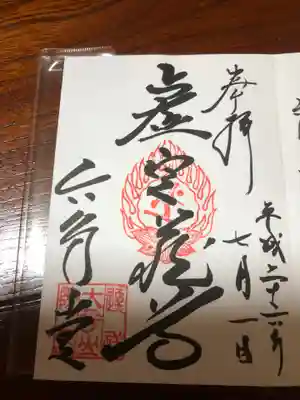 奉拝
平成二十六年
七月一日
虚空蔵尊
六角堂